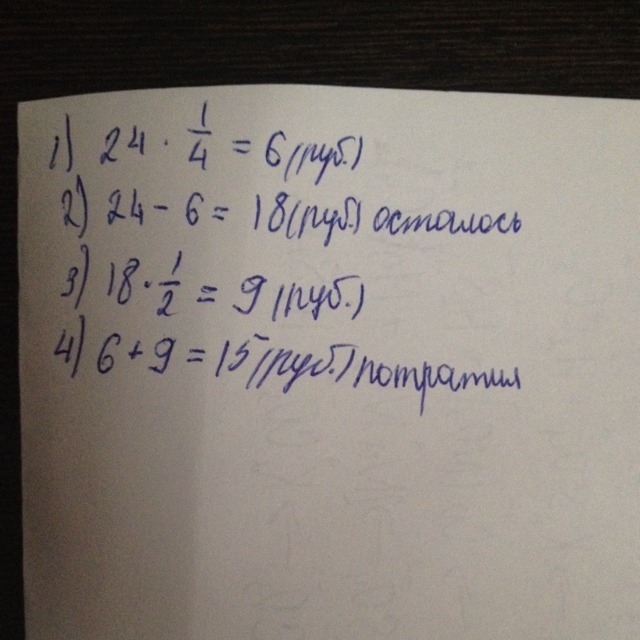 1) 24 · 1/4 = 6 (руб.)
2) 24 - 6 = 18 (руб) осталось
3) 18 · 1/2 = 9 (руб.)
4) 6 + 9 = 15 (руб.) потратил